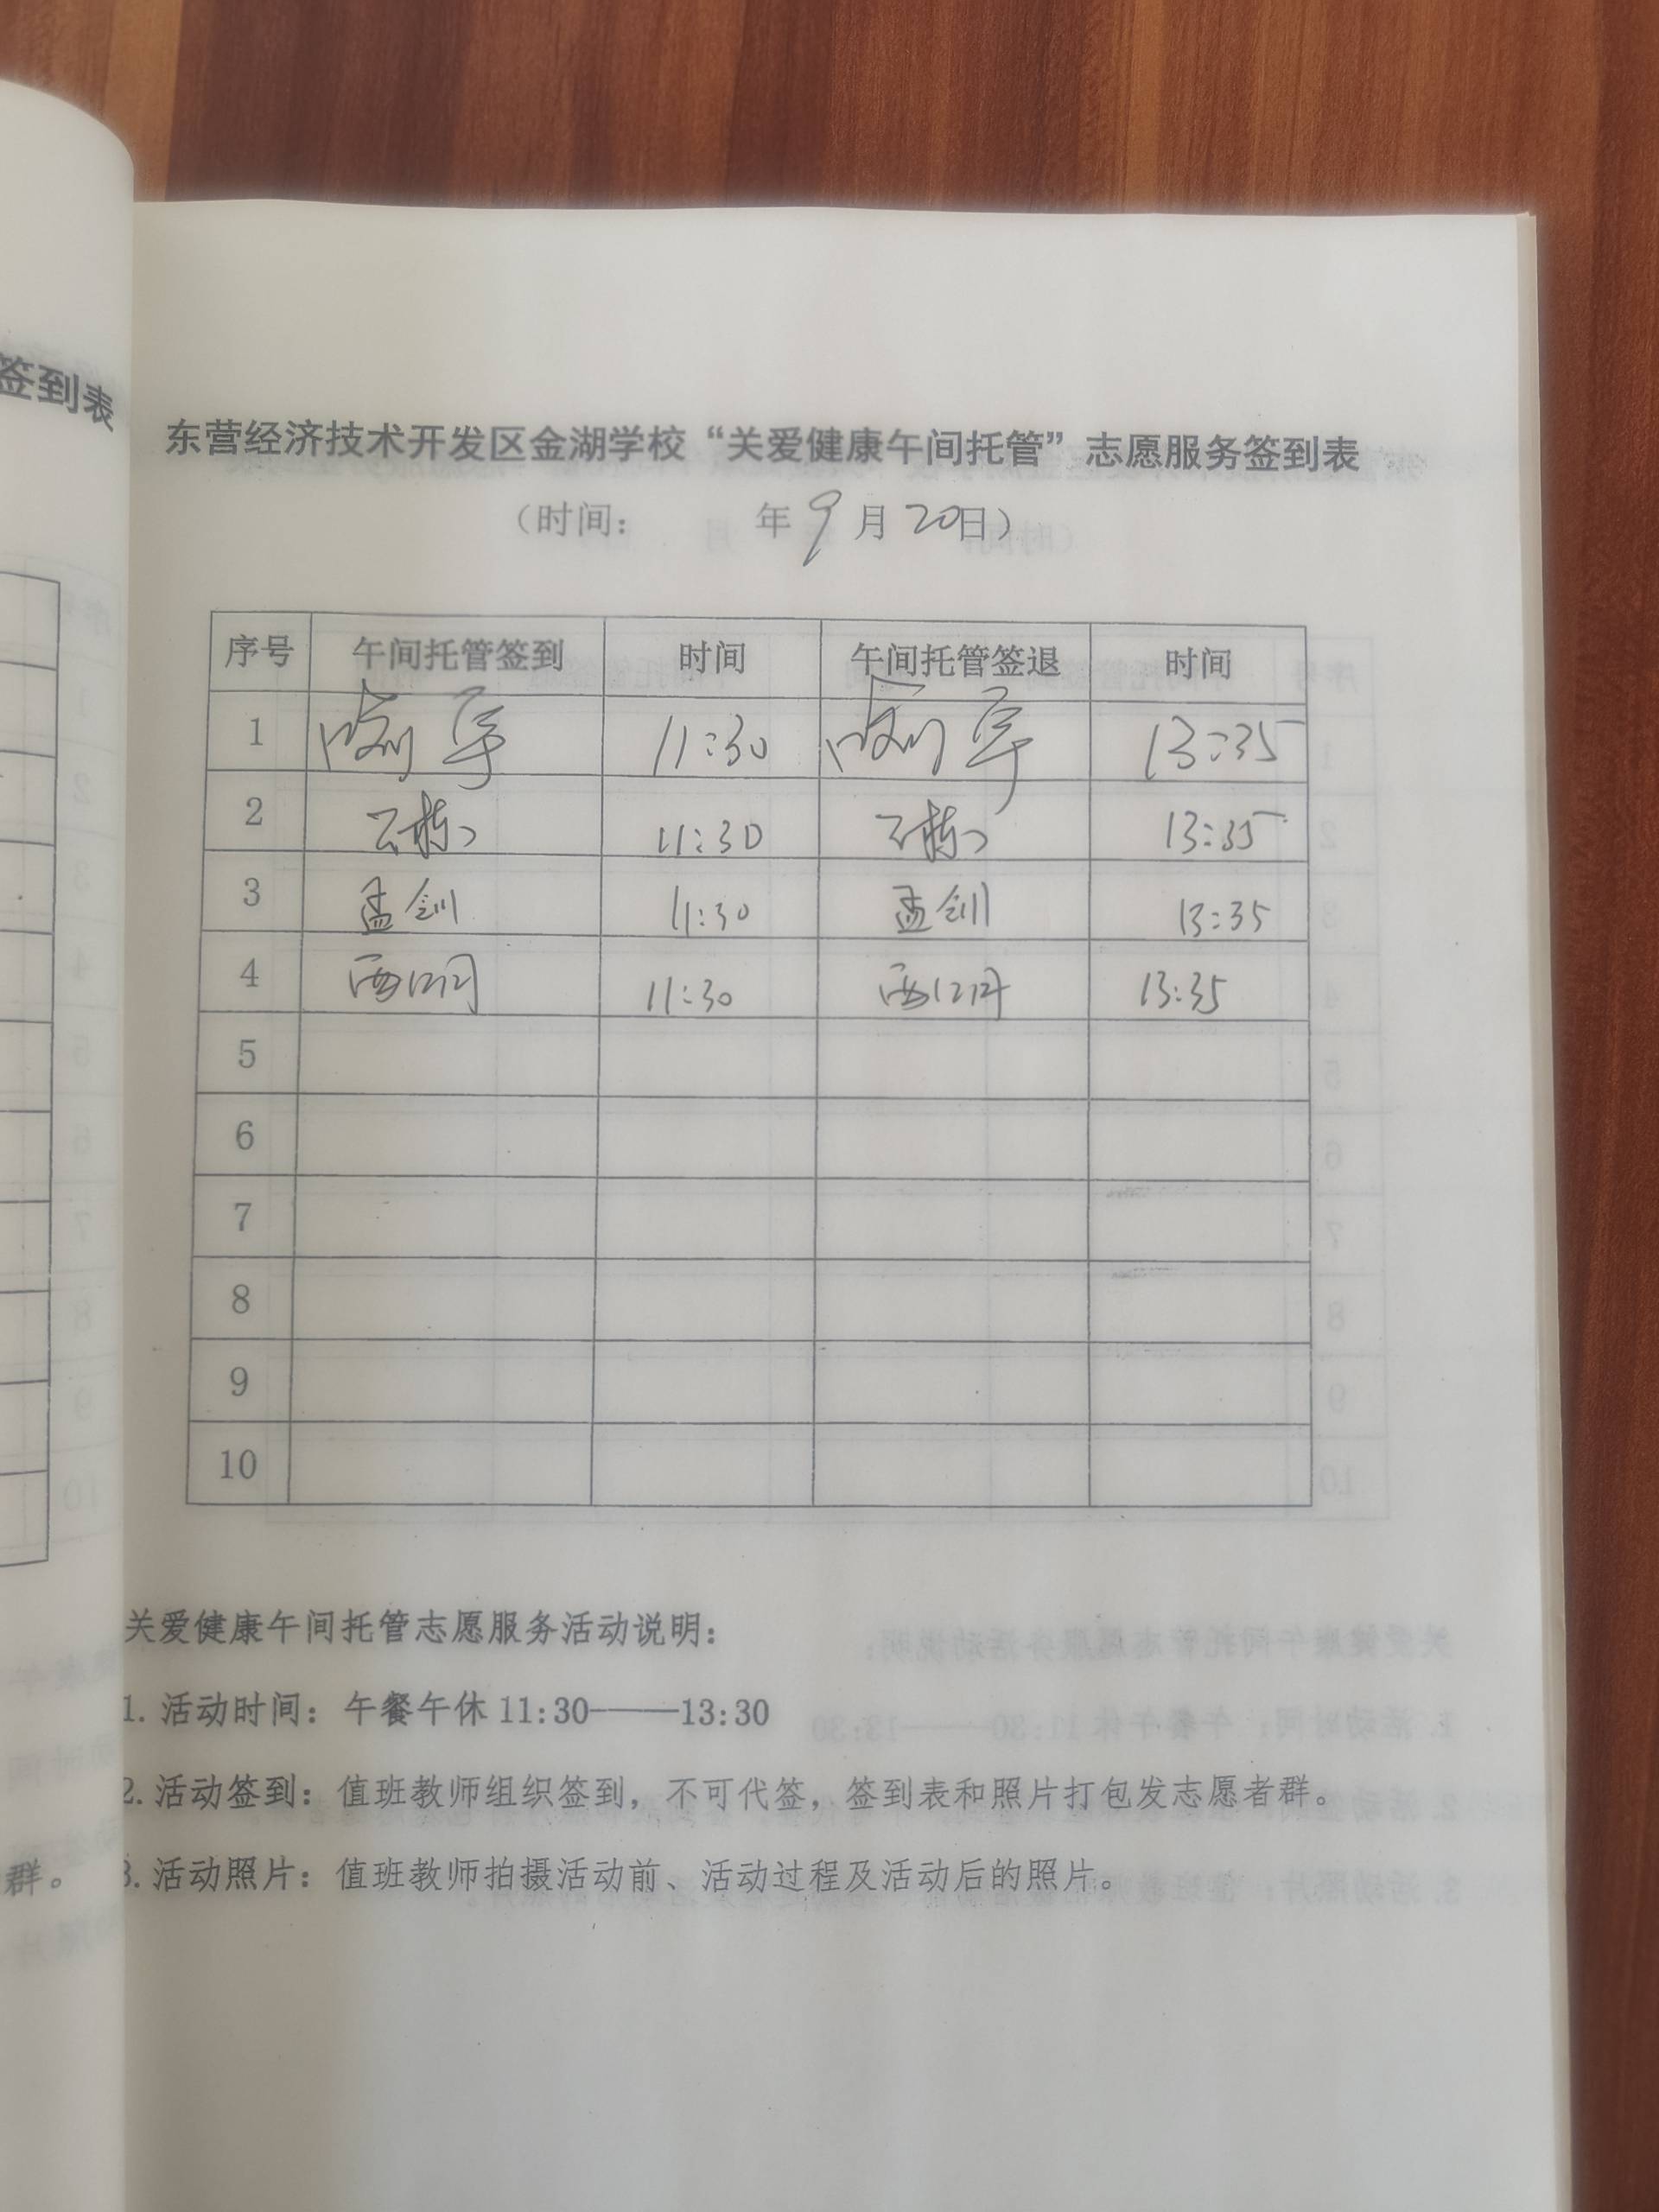 签到表
东营经济技术开发区金湖学校“关爱健康午间托管”志愿服务签到表
（时间： 年 9 月 20日）
序号 午间托管签到 时间 午间托管签退 时间
1 11:30 13:35
2 11:30 13:35
3 孟钏 11:30 孟钏 13:35
4 11:30 13:35
5
6
7
8
9
10
关爱健康午间托管志愿服务活动说明：
1. 活动时间：午餐午休 11:30——13:30
2. 活动签到：值班教师组织签到，不可代签，签到表和照片打包发志愿者群。
3. 活动照片：值班教师拍摄活动前、活动过程及活动后的照片。
群。